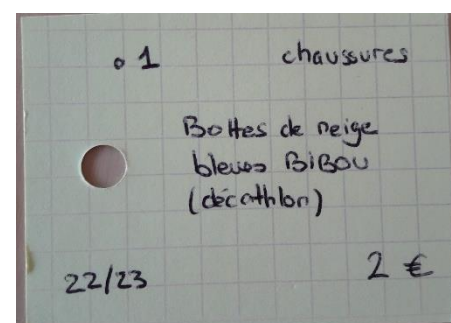 o 1 chaussures
Bottes de neige
bleues BiBOU
(décathlon)
22/23 2 €